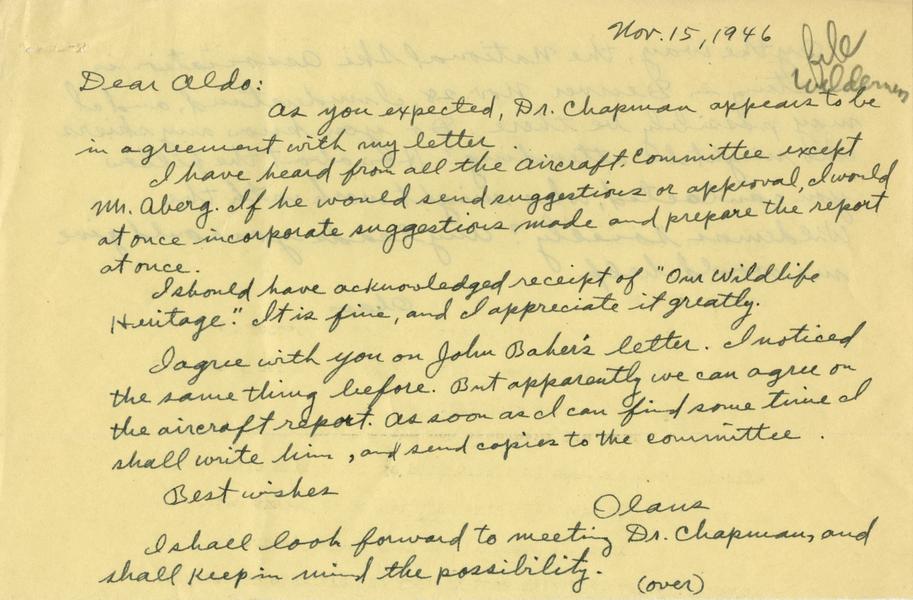 Nov. 15, 1946
file
Wilderness
Dear Aldo:
As you expected, Dr. Chapman appears to be
in agreement with my letter.
I have heard from all the Aircraft Committee except
Mr. Aberg. If he would send suggestions or approval, I would
at once incorporate suggestions made and prepare the report
at once.
I should have acknowledged receipt of "Our Wildlife
Heritage". It is fine, and I appreciate it greatly.
I agree with you on John Baker's letter. I noticed
the same thing before. But apparently we can agree on
the aircraft report. As soon as I can find some time I
shall write him, and send copies to the committee.
Best wishes
Olaus
I shall look forward to meeting Dr. Chapman, and
shall keep in mind the possibility.
(over)